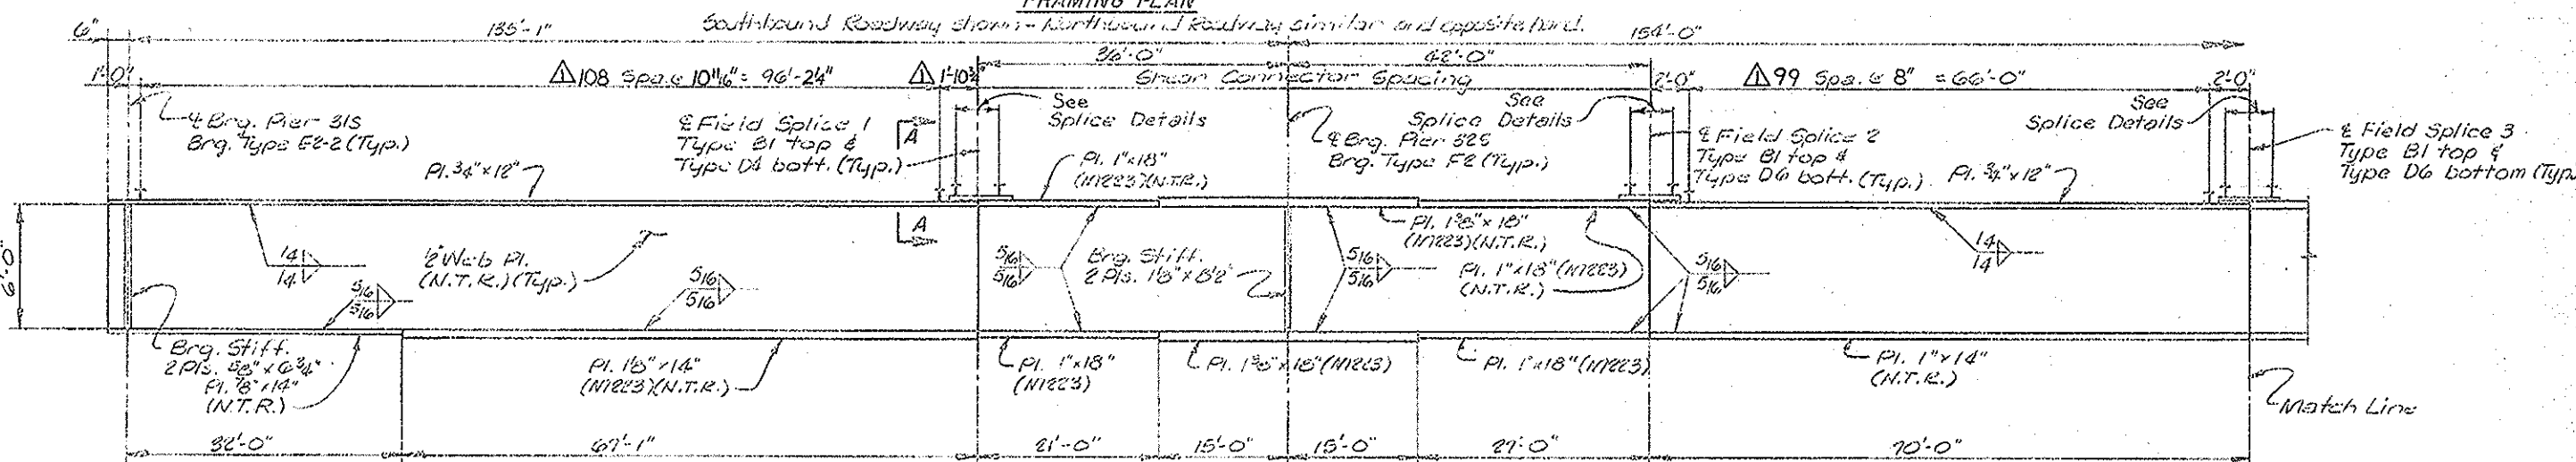 FRAMING PLAN
Southbound Roadway shown - Northbound Roadway similar and opposite hand.
6" 135'-1" 154'-0"
36'-0" 42'-0"
1'-0" 1 108 Spa. @ 10 11/16" = 96'-2 1/4" 1 1'-10 3/4" Shear Connector Spacing 2'-0" 1 99 Spa. @ 8" = 66'-0" 2'-0"
℄ Brg. Pier 31S
Brg. Type E2-2 (Typ.)
℄ Field Splice 1
Type B1 top &
Type D4 bott. (Typ.)
A
See
Splice Details
℄ Brg. Pier 32S
Brg. Type F2 (Typ.)
See
Splice Details
℄ Field Splice 2
Type B1 top &
Type D6 bott. (Typ.)
See
Splice Details
℄ Field Splice 3
Type B1 top &
Type D6 bottom (Typ.
Pl. 3/4" x 12"
Pl. 1" x 18"
(M223)(N.T.R.)
Pl. 3/4" x 12"
6'-0"
A
1/4
1/4
1/2" Web Pl.
(N.T.R.)(Typ.)
5/16
5/16
5/16
5/16
5/16
5/16
Brg. Stiff.
2 Pls. 1 1/8" x 8 1/2"
5/16
5/16
Pl. 1 3/8" x 18"
(M223)(N.T.R.)
Pl. 1" x 18" (M223)
(N.T.R.)
5/16
5/16
1/4
1/4
Brg. Stiff.
2 Pls. 5/8" x 6 3/4"
Pl. 7/8" x 14"
(N.T.R.)
Pl. 1 1/8" x 14"
(M223)(N.T.R.)
Pl. 1" x 18"
(M223)
Pl. 1 3/8" x 18" (M223)
Pl. 1" x 18" (M223)
Pl. 1" x 14"
(N.T.R.)
Match Line
32'-0" 67'-1" 21'-0" 15'-0" 15'-0" 27'-0" 70'-0"